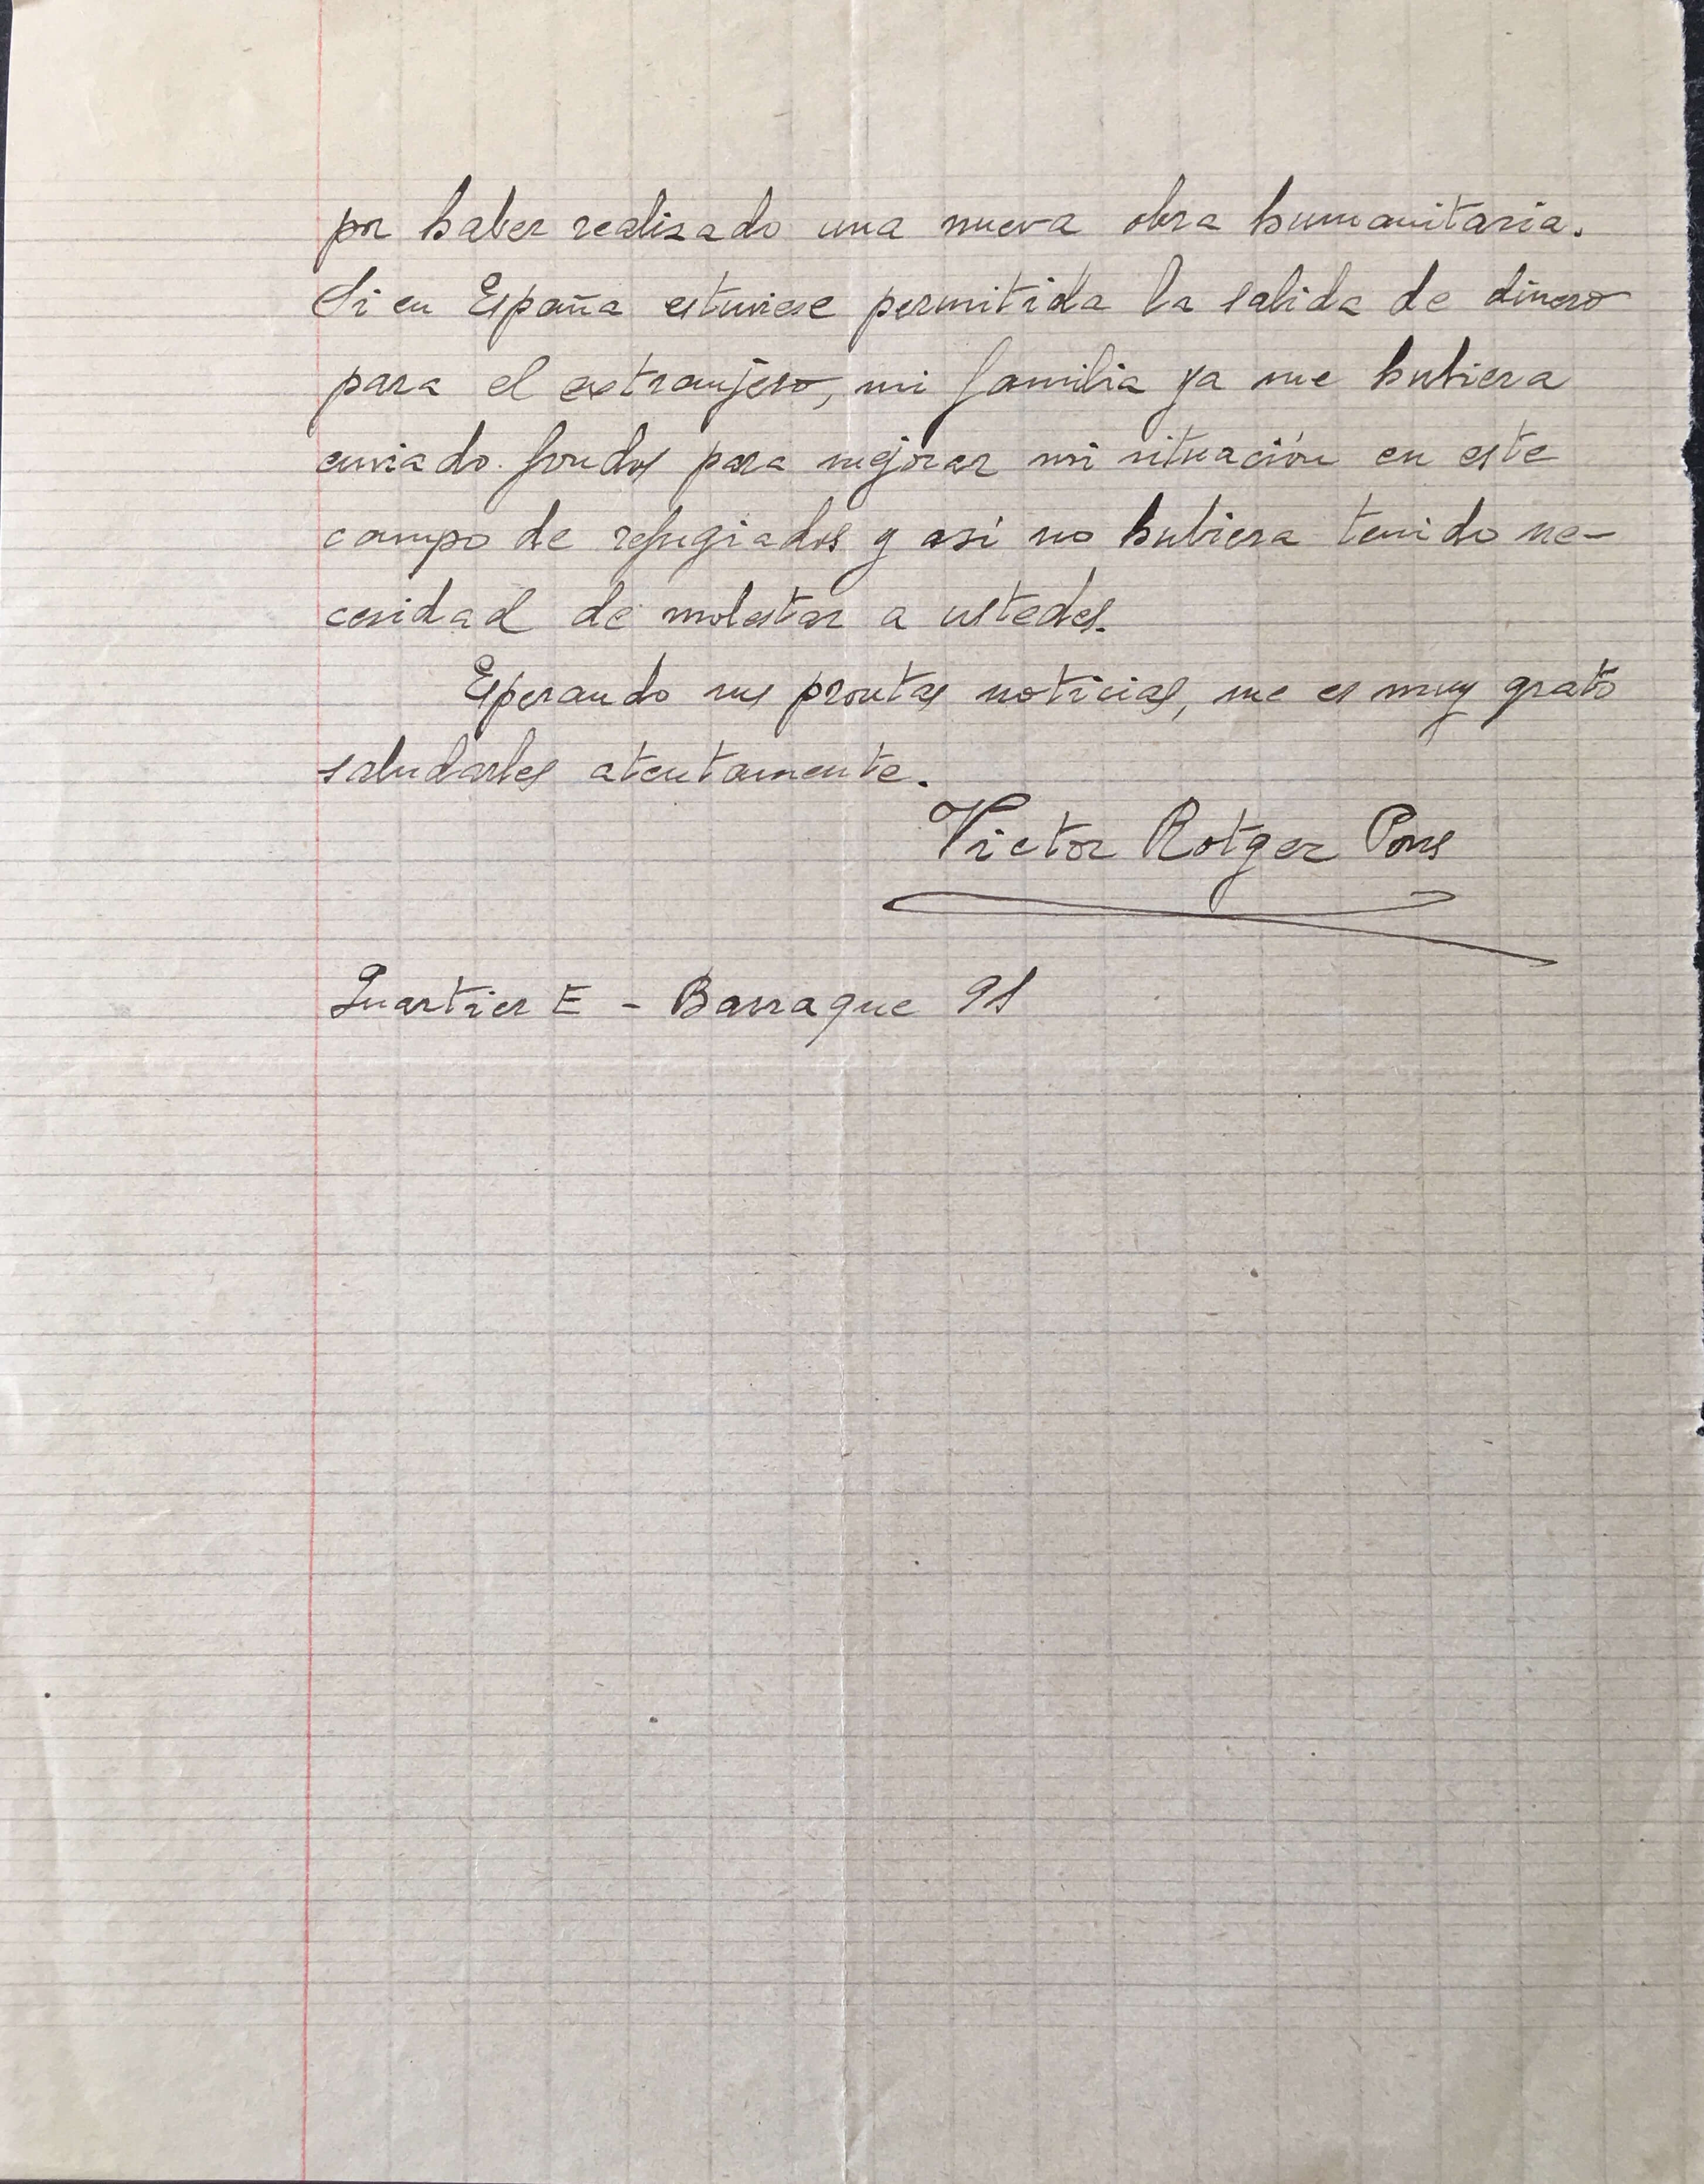 por haber realizado una nueva obra humanitaria.
Si en España estuviese permitida la salida de dinero
para el extranjero, mi familia ya me hubiera
enviado fondos para mejorar mi situación en este
campo de refugiados y asi no hubiera tenido ne-
cesidad de molestar a ustedes.
Esperando sus prontas noticias, me es muy grato
saludarles atentamente.
Victor Rotger Pons
Quartier E - Barraque 91